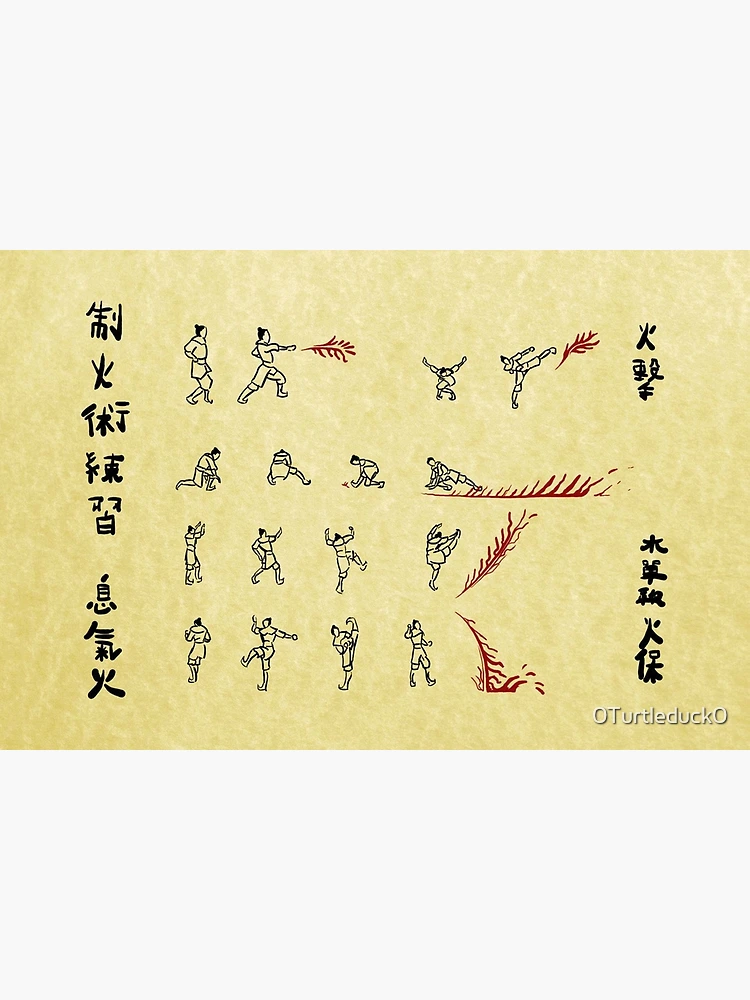 制火術練習 息氣火
火擊
水單 火保
OTurtleduckO